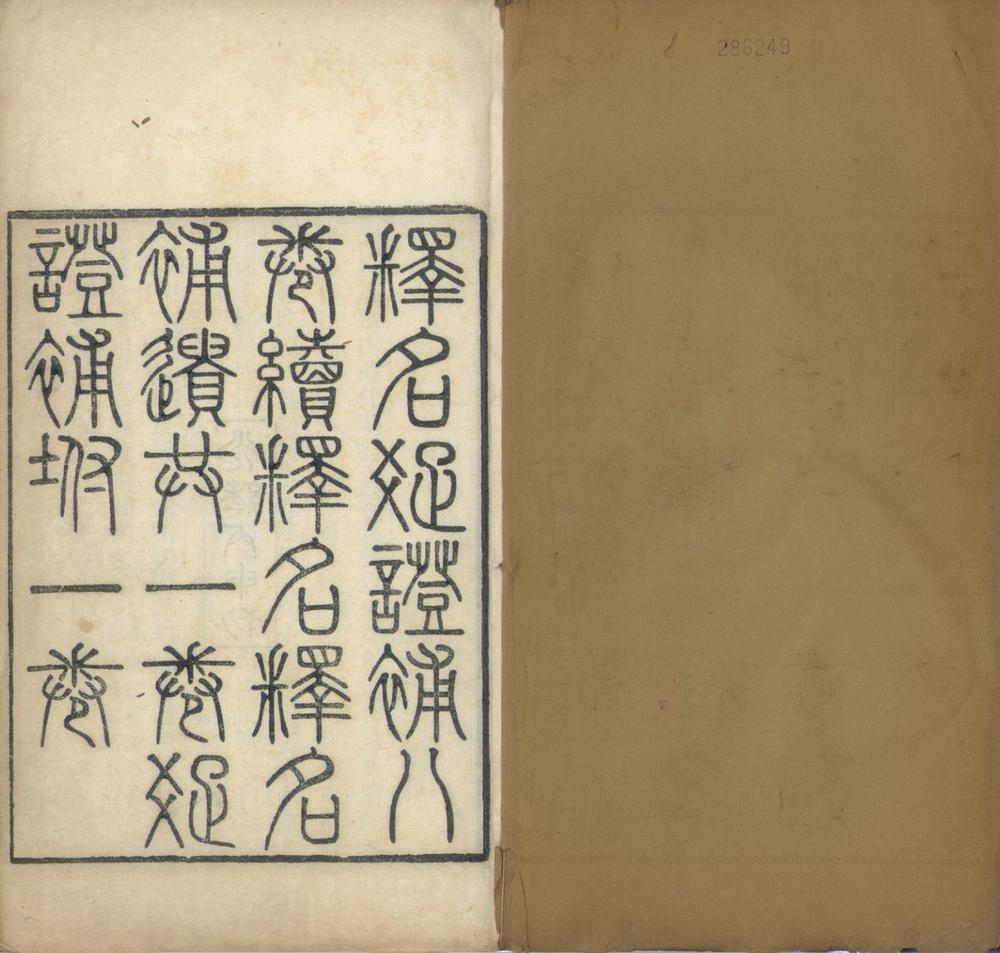 286249
釋名疏證補八
卷續釋名釋名
補遺共一卷疏
證補坿一卷